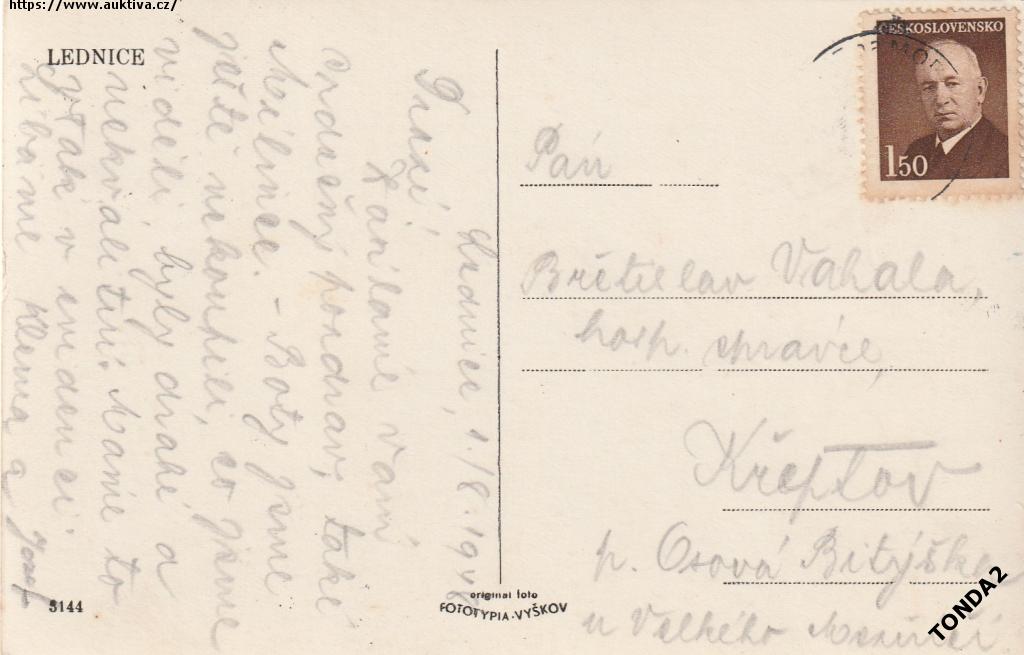 https://www.auktiva.cz/
LEDNICE
Lednice, 1./8. 1948
Drazí
Zasíláme Vám
srdečný pozdrav, také
Mílince. - Boty jsme
ještě nekoupili, co jsme
viděli byly drahé a
nekvalitní. Máme to
však v evidenci.
Líbáme Vlema a Josef
3144
original foto
FOTOTYPIA-VYŠKOV
ČESKOSLOVENSKO
1.50
Pán
Břetislav Vahala,
hosp. správce,
Křeptov
p. Osová Bitýška
u Velkého Meziříčí
TONDA2